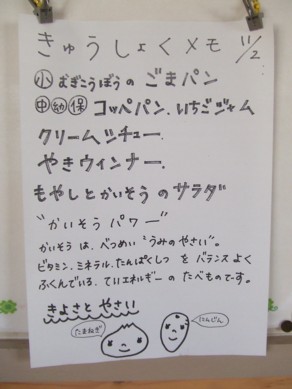 きゅうしょくメモ 11/2
小 むぎこうぼうの ごまパン
中 幼 保 コッペパン、いちごジャム
クリームシチュー、
やきウィンナー、
もやしとかいそうのサラダ
"かいそうパワー"
かいそうは、べつめい"うみのやさい"。
ビタミン、ミネラル、たんぱくしつ を バランスよく
ふくんでいる、ていエネルギーの たべものです。
きよさと やさい
たまねぎ
にんじん